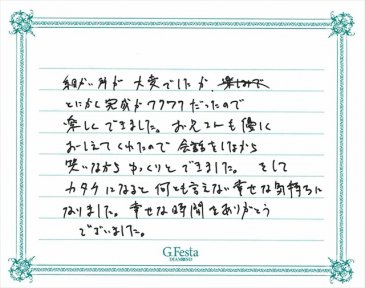 細かい所が大変でしたが、
とにかく完成がワクワクだったので
楽しくできました。お兄さんも優しく
おしえてくれたので会話をしながら
笑いながらゆっくりとできました。そして
カタチになると何とも言えない幸せな気持ちに
なりました。幸せな時間をありがとう
ございました。
G.Festa
DIAMOND